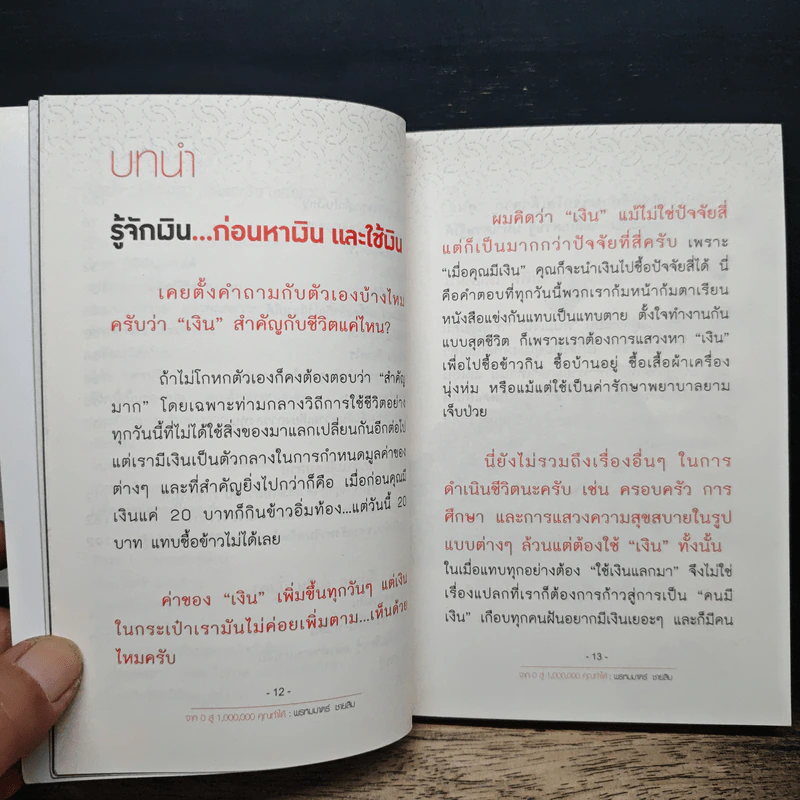 บทนำ
รู้จักเงิน...ก่อนหาเงิน และใช้เงิน
เคยตั้งคำถามกับตัวเองบ้างไหม
ครับว่า “เงิน” สำคัญกับชีวิตแค่ไหน?
ถ้าไม่โกหกตัวเองก็คงต้องตอบว่า “สำคัญ
มาก” โดยเฉพาะท่ามกลางวิถีการใช้ชีวิตอย่าง
ทุกวันนี้ที่ไม่ได้ใช้สิ่งของมาแลกเปลี่ยนกันอีกต่อไป
แต่เรามีเงินเป็นตัวกลางในการกำหนดมูลค่าของ
ต่างๆ และที่สำคัญยิ่งไปกว่าก็คือ เมื่อก่อนคุณมี
เงินแค่ 20 บาทก็กินข้าวอิ่มท้อง...แต่วันนี้ 20
บาท แทบซื้อข้าวไม่ได้เลย
ค่าของ “เงิน” เพิ่มขึ้นทุกวันๆ แต่เงิน
ในกระเป๋าเรามันไม่ค่อยเพิ่มตาม...เห็นด้วย
ไหมครับ
- 12 -
จาก 0 สู่ 1,000,000 คุณทำได้ : พรหมมาตร์ ชายสิม
ผมคิดว่า “เงิน” แม้ไม่ใช่ปัจจัยสี่
แต่ก็เป็นมากกว่าปัจจัยที่สี่ครับ เพราะ
“เมื่อคุณมีเงิน” คุณก็จะนำเงินไปซื้อปัจจัยสี่ได้ นี่
คือคำตอบที่ทุกวันนี้พวกเราก้มหน้าก้มตาเรียน
หนังสือแข่งกันแทบเป็นแทบตาย ตั้งใจทำงานกัน
แบบสุดชีวิต ก็เพราะเราต้องการแสวงหา “เงิน”
เพื่อไปซื้อข้าวกิน ซื้อบ้านอยู่ ซื้อเสื้อผ้าเครื่อง
นุ่งห่ม หรือแม้แต่ใช้เป็นค่ารักษาพยาบาลยาม
เจ็บป่วย
นี่ยังไม่รวมถึงเรื่องอื่นๆ ในการ
ดำเนินชีวิตนะครับ เช่น ครอบครัว การ
ศึกษา และการแสวงความสุขสบายในรูป
แบบต่างๆ ล้วนแต่ต้องใช้ “เงิน” ทั้งนั้น
ในเมื่อแทบทุกอย่างต้อง “ใช้เงินแลกมา” จึงไม่ใช่
เรื่องแปลกที่เราก็ต้องการก้าวสู่การเป็น “คนมี
เงิน” เกือบทุกคนฝันอยากมีเงินเยอะๆ และก็มีคน
- 13 -
จาก 0 สู่ 1,000,000 คุณทำได้ : พรหมมาตร์ ชายสิม